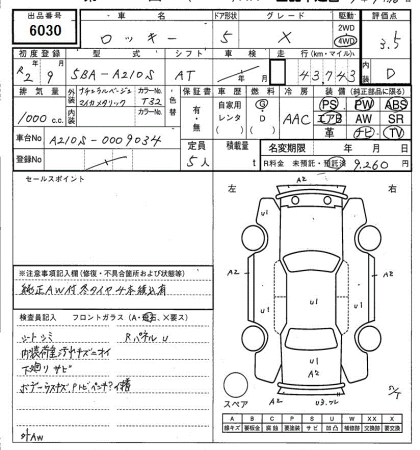 出品番号 車名 ドア形状 グレード 駆動 評価点
6030 ロッキー 5 X 2WD 4WD 3.5
初度登録 型式 シフト 車検 走行(km・マイル) 内装
R2 9 5BA-A210S AT 年 月 43,743 D
排気量 外装 ナチュラルベージュマイカメタリック カラーNo. T32 色替 保証書 車歴 燃料 冷房 装備(純正部品に限る)
1000 c.c. 内装 カラーNo. 有・無 自家用 レンタ G・D AAC PS PW ABS
エアB AW SR
革 ナビ TV
車台No A210S-0009034 定員 積載量 名変期限 年 月 日
登録No 5人 t R料金 未預託・預託済 9,260円
セールスポイント
左 右
※注意事項記入欄(修復・不具合箇所および状態等)
純正AW付冬タイヤ4本積込有
検査員記入 フロントガラス(A・飛石、×要ス)
シートシミ Rパネル U
内装荷室汚れキズニオイ
下廻りサビ
外AW
A2
U1
A2 U1 U1 A2
U1
A2
A2 U3
スペア
A B C P S U W X XX ×
線キズ 要板金 腐蝕 要塗装 サビ 凹凸 補修跡 要交換